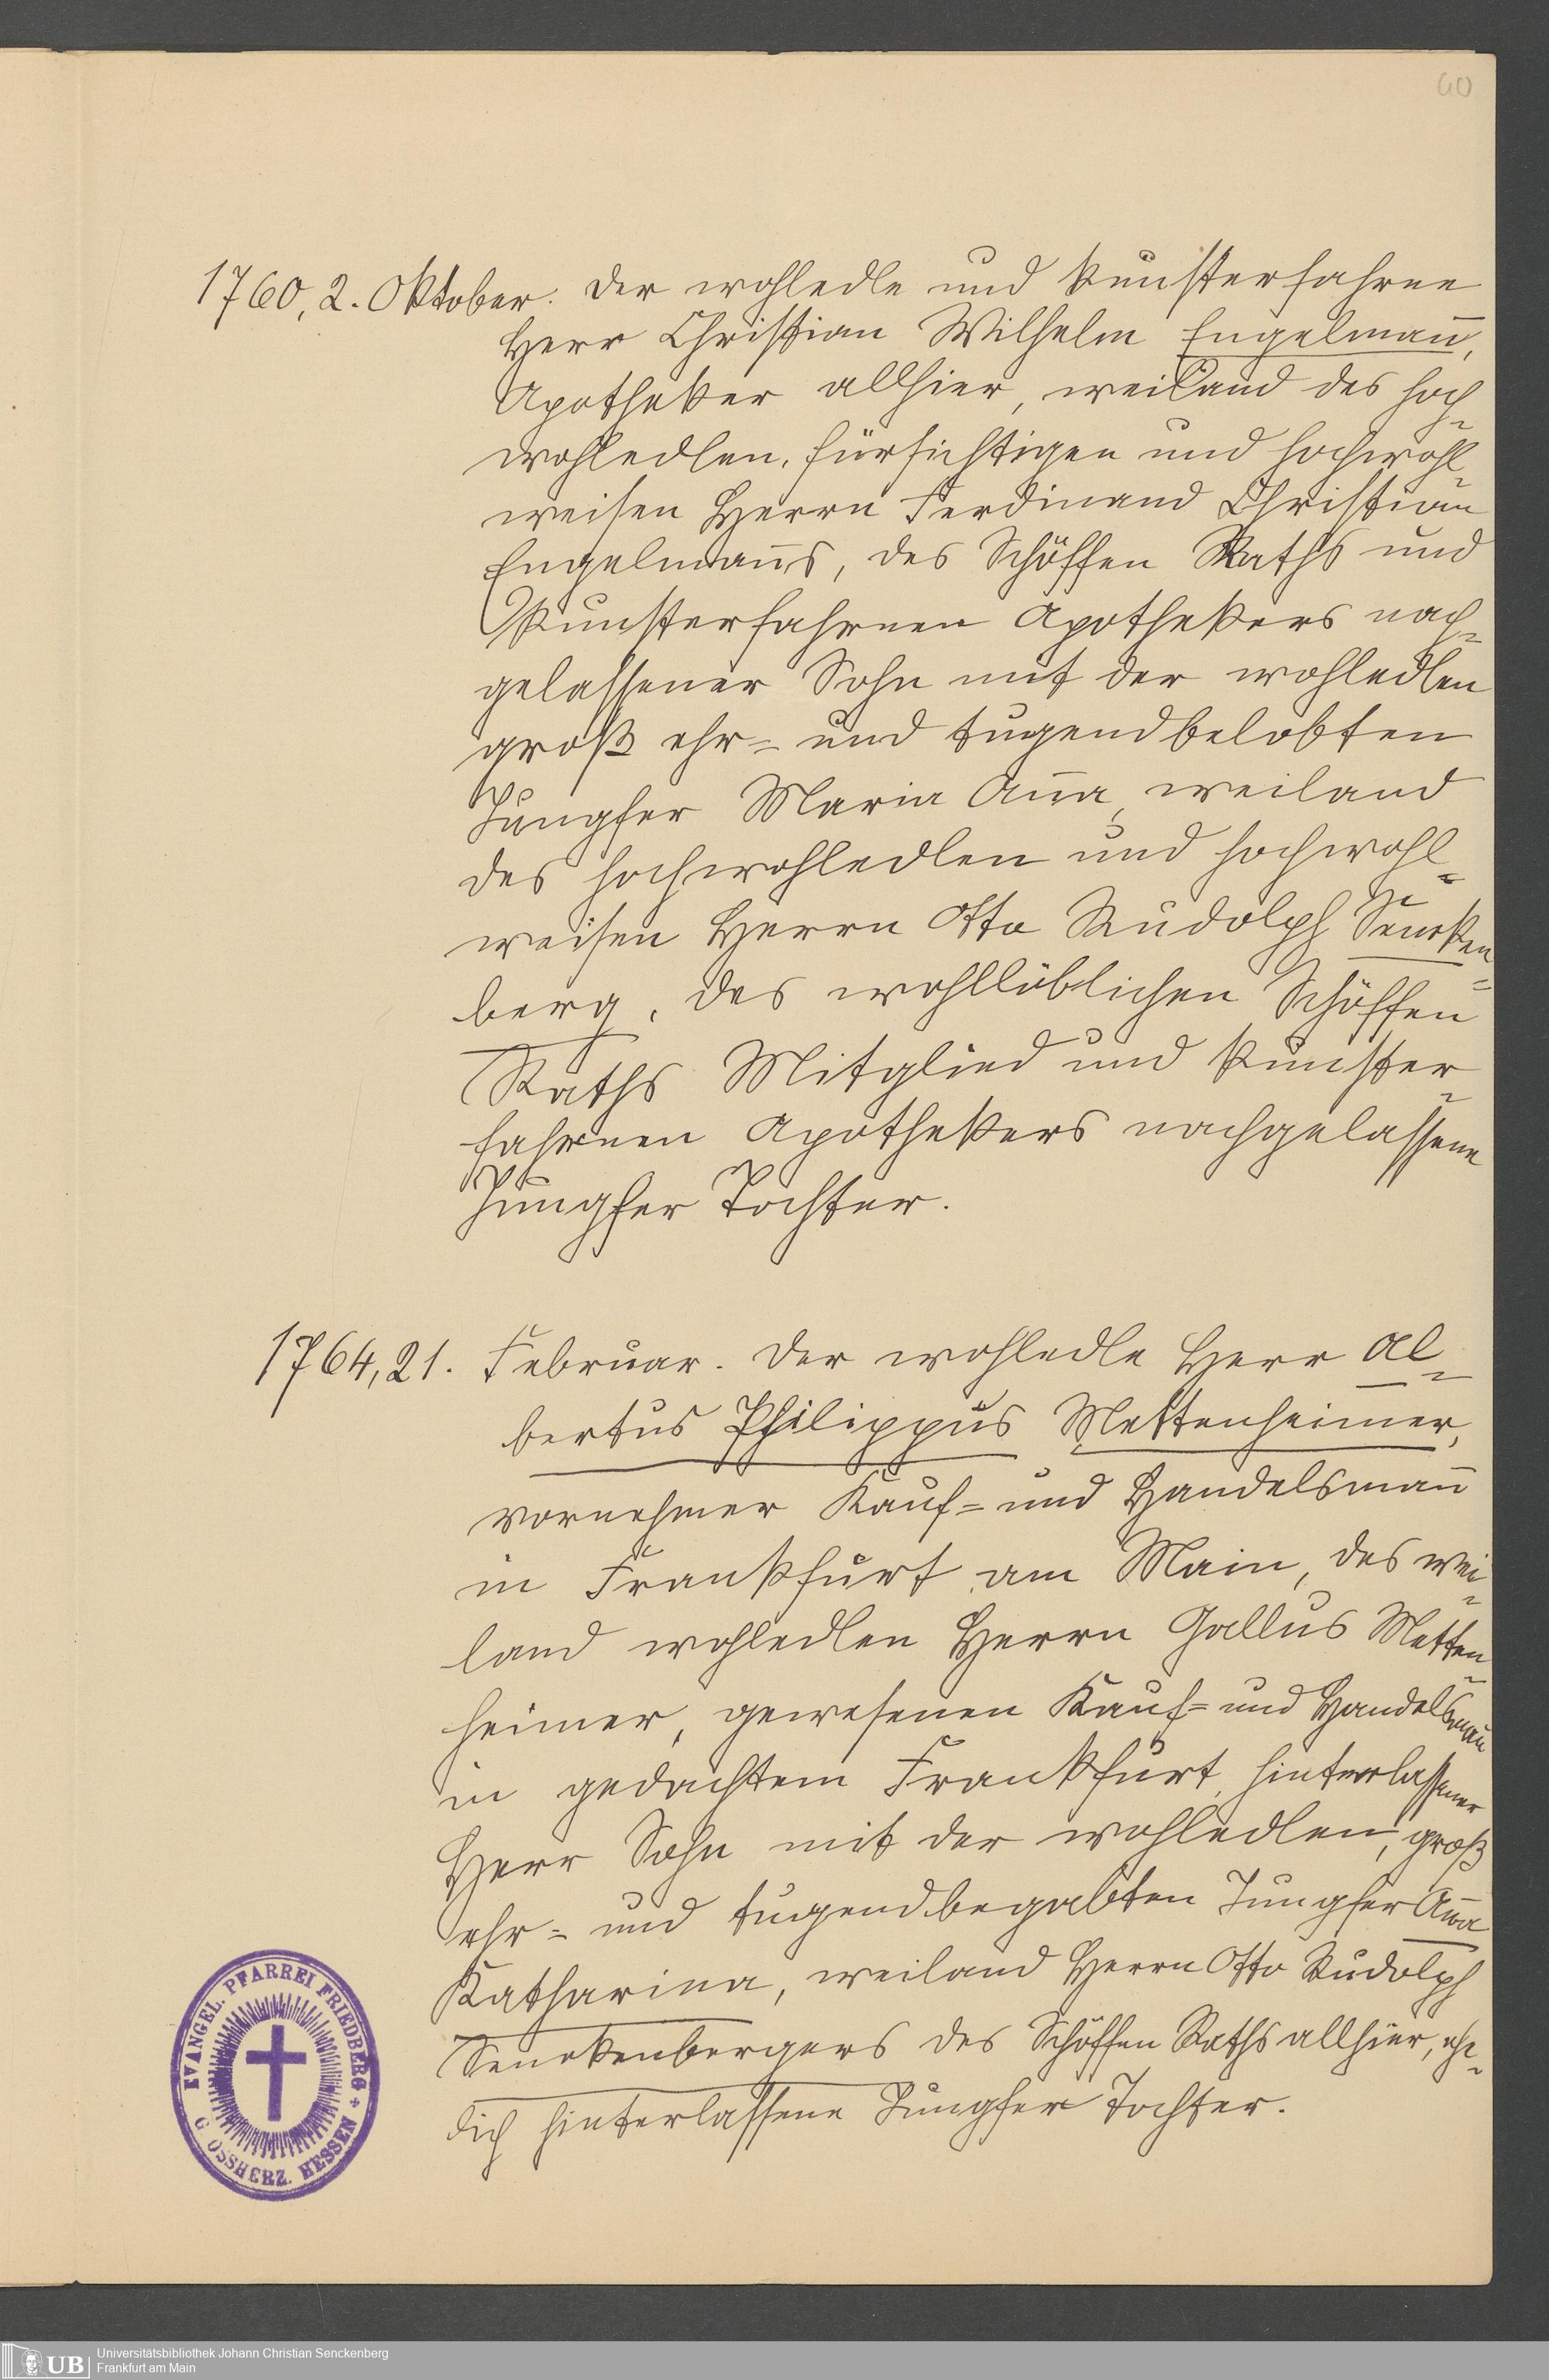 60
1760, 2. Oktober. Der wohledle und kunsterfahrne
Herr Christian Wilhelm Engelmañ,
Apotheker allhier, weiland des hoch-
wohledlen, fürsichtigen und hochwohl-
weisen Herrn Ferdinand Christian
Engelmañs, des Schöffen Raths und
Kunsterfahrnen Apothekers nach-
gelassener Sohn mit der wohledlen
groß ehr- und tugendbelobten
Jungfer Maria Aña, weiland
des hochwohledlen und hochwohl-
weisen Herrn Otto Rudolph Sencken-
berg, des wohllöblichen Schöffen
Raths Mitglied und kunster-
fahrnen Apothekers nachgelassene
Jungfer Tochter.
1764, 21. Februar. Der wohledle Herr Al-
bertus Philippus Mettenheimer,
vornehmer Kauf- und Handelsmañ
in Frankfurt am Main, des wei-
land wohledlen Herrn Gallus Metten-
heimer, gewesenen Kauf- und Handelsmañ
in gedachtem Frankfurt, hinterlassener
Herr Sohn mit der wohledlen, groß
ehr- und tugendbegabten Jungfer Aña
Katharina, weiland Herrn Otto Rudolph
Senckenbergers des Schöffen Raths allhier, ehe-
lich hinterlassene Jungfer Tochter.
EVANGEL. PFARREI FRIEDBERG
G OSSHERZ. HESSEN
UB
Universitätsbibliothek Johann Christian Senckenberg
Frankfurt am Main